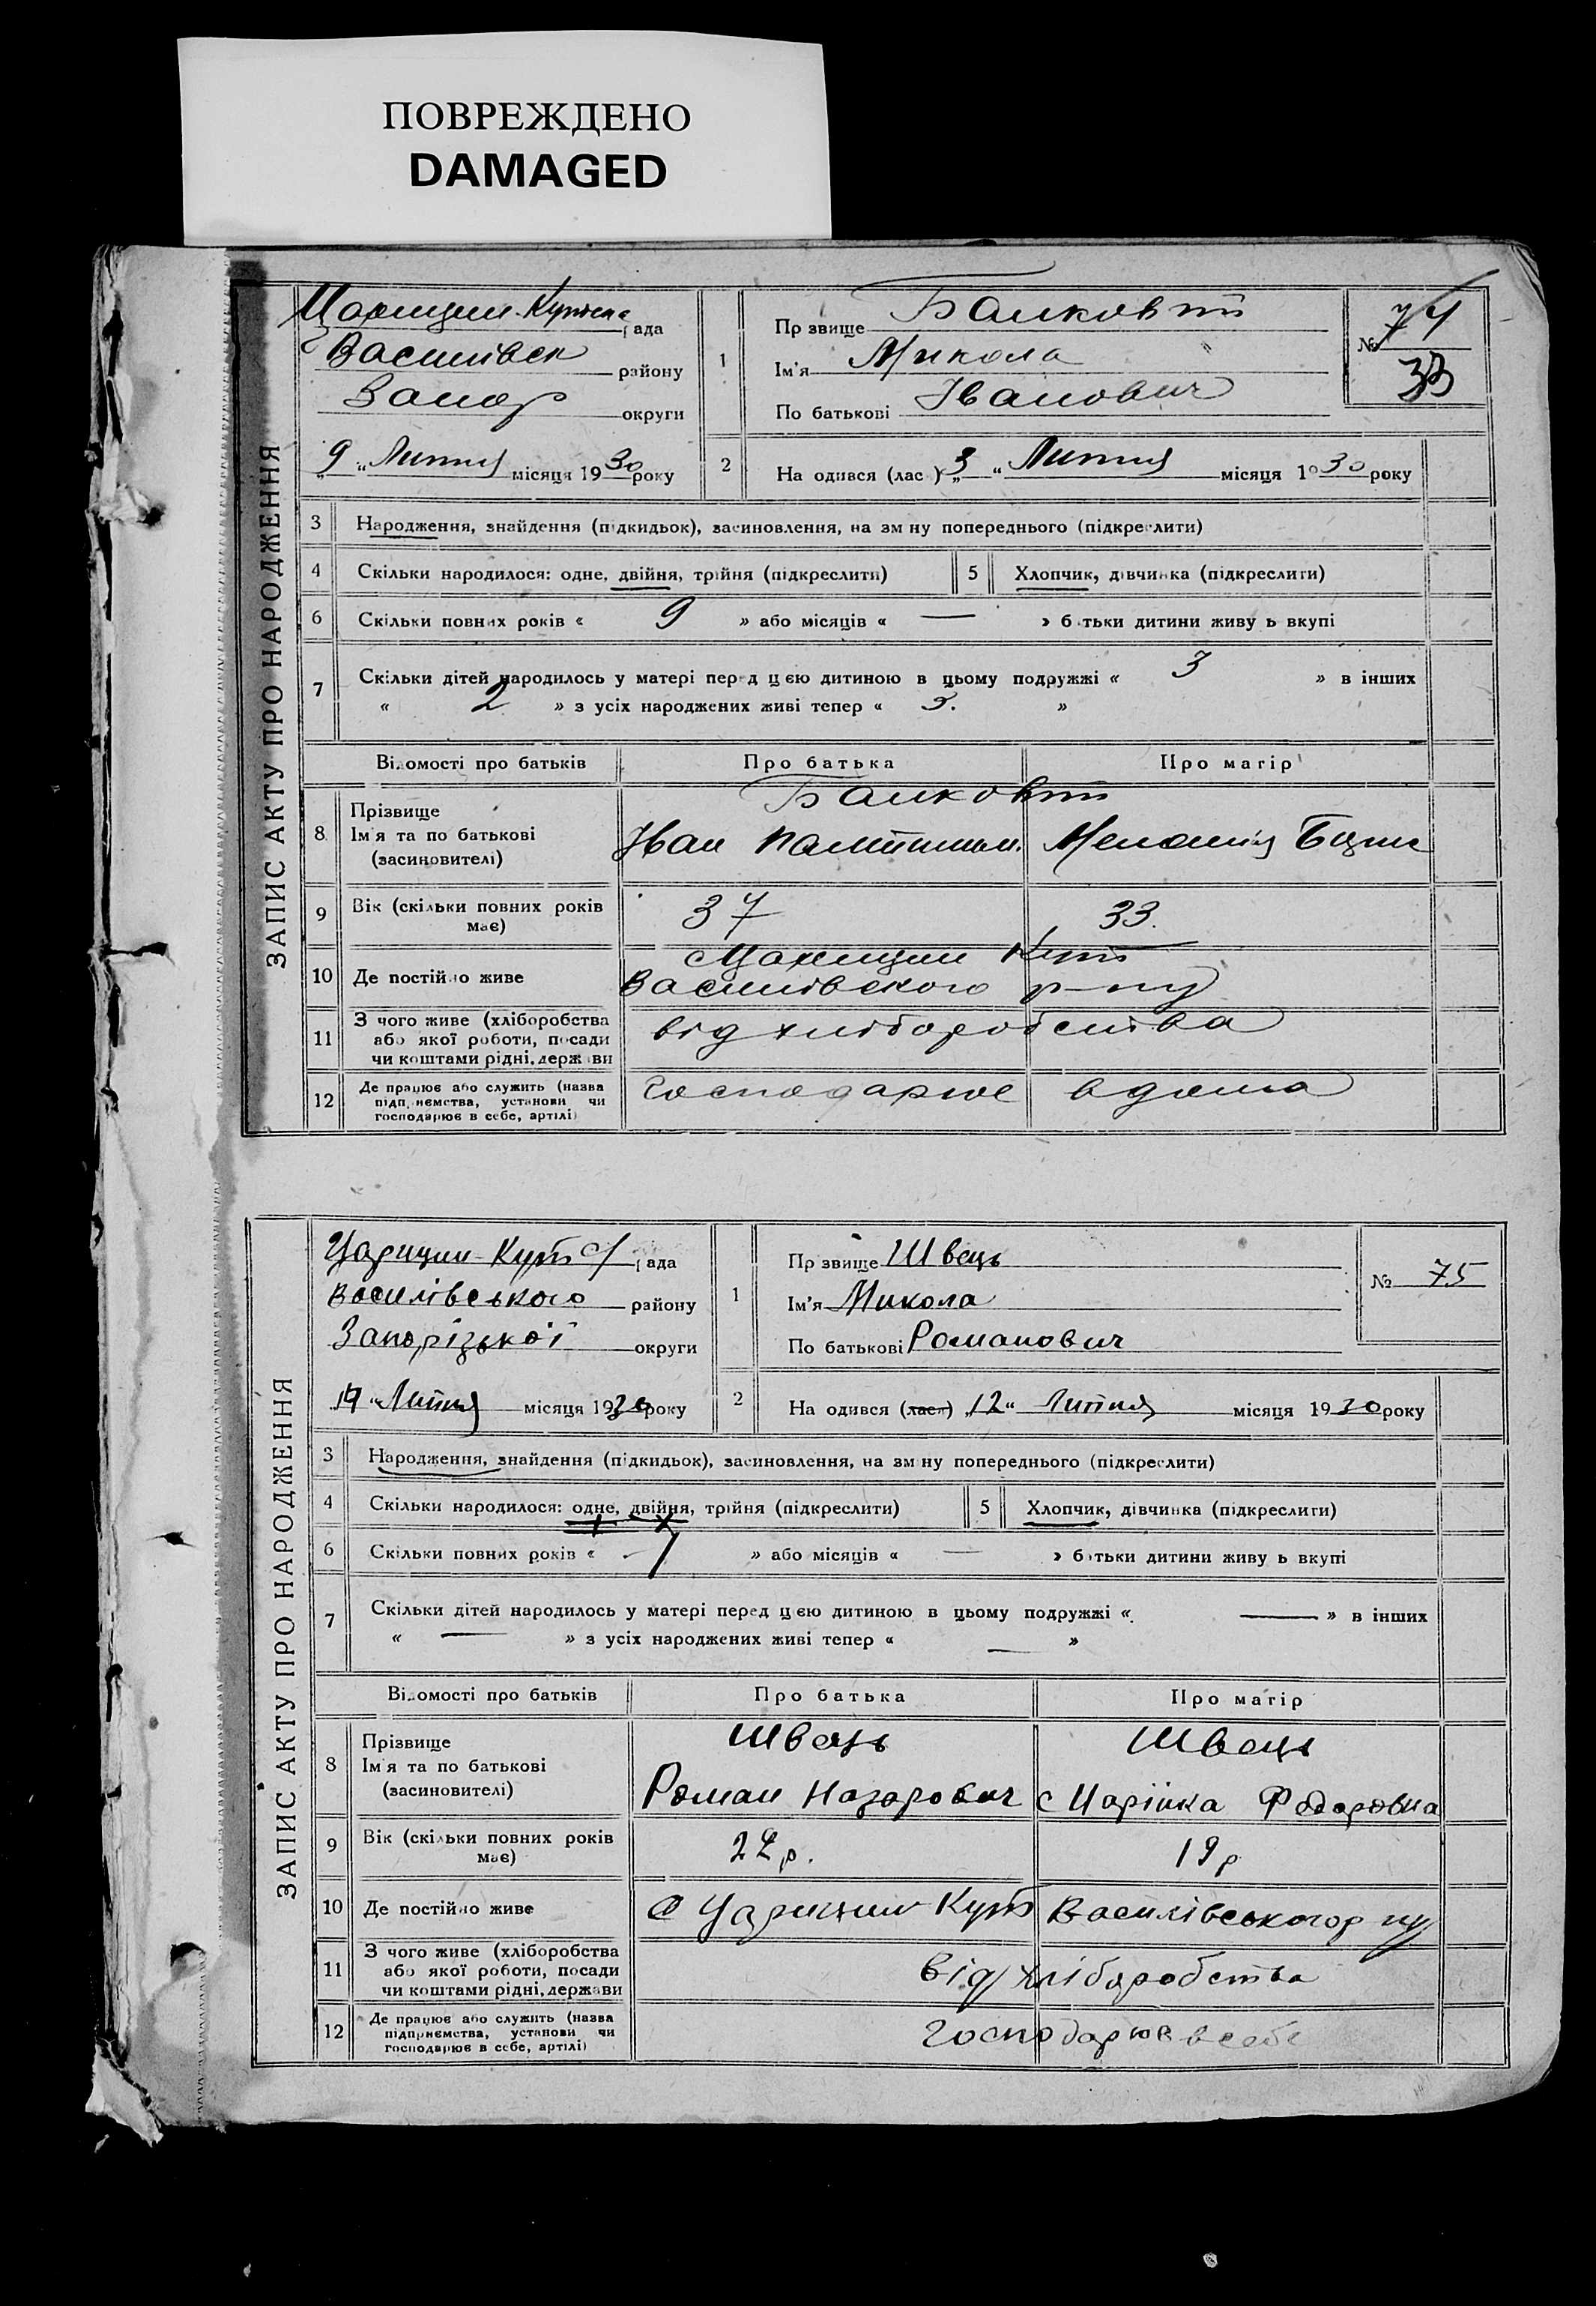 ПОВРЕЖДЕНО
DAMAGED
ЗАПИС АКТУ ПРО НАРОДЖЕННЯ
рада
Василівск району
Запор округи
„9“ Липня місяця 1930 року
1
Прізвище
Ім'я Микола
По батькові Іванович
№ 74
33
2
На одився (лас ) „3“ Липня місяця 1930 року
3 Народження, знайдення (підкидьок), засиновлення, на зм ну попереднього (підкреслити)
4 Скільки народилося: одне, двійня, трійня (підкреслити) 5 Хлопчик, дівчинка (підкреслити)
6 Скільки повних років « 9 » або місяців « — » б тьки дитини живу ь вкупі
7 Скільки дітей народилось у матері перед цією дитиною в цьому подружжі « 3 » в інших
« 2 » з усіх народжених живі тепер « 3. »
Відомості про батьків Про батька Про матір
8 Прізвище
Ім'я та по батькові Іван Меланія
(засиновителі)
9 Вік (скільки повних років має) 37 33.
10 Де постійно живе Кут
Василівского р-ну
11 З чого живе (хліборобства
або якої роботи, посади
чи коштами рідні, держави від хліборобства
12 Де працює або служить (назва
підприємства, установи чи
господарює в себе, артілі) Господарює вдома
ЗАПИС АКТУ ПРО НАРОДЖЕННЯ
Царицин-Кут с/рада
Василівського району
Запорізької округи
Липня місяця 1930 року
1
Прізвище Швець
Ім'я Микола
По батькові Романович
№ 75
2
На одився (лася) „12“ Липня місяця 1930 року
3 Народження, знайдення (підкидьок), засиновлення, на зм ну попереднього (підкреслити)
4 Скільки народилося: одне, двійня, трійня (підкреслити) 5 Хлопчик, дівчинка (підкреслити)
6 Скільки повних років « 1 » або місяців « — » батьки дитини живу ь вкупі
7 Скільки дітей народилось у матері перед цією дитиною в цьому подружжі « — » в інших
« — » з усіх народжених живі тепер « — »
Відомості про батьків Про батька Про матір
8 Прізвище Швець Швець
Ім'я та по батькові
(засиновителі) Роман Назарович Марійка Федоровна
9 Вік (скільки повних років має) 22 р. 19 р
10 Де постійно живе с Царицин Кут Василівського р ну
11 З чого живе (хліборобства
або якої роботи, посади
чи коштами рідні, держави від хліборобства
12 Де працює або служить (назва
підприємства, установи чи
господарює в себе, артілі) господарює в себе